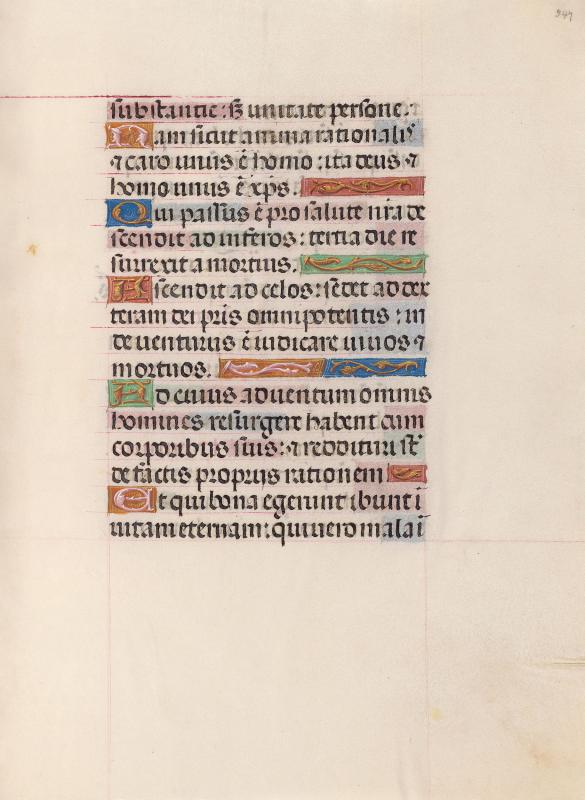 247
substantie: sꝫ unitate persone.
Nam sicut anima rationalis
⁊ caro unus ē homo: ita deus ⁊
homo unus ē xp̄s.
Qui passus ē pro salute nr̄a de
scendit ad inferos: tertia die re
surrexit a mortuis.
Ascendit ad celos: sedet ad dex
teram dei pr̄is omnipotentis: in
de uenturus ē iudicare uiuos ⁊
mortuos.
Ad cuius aduentum omnis
homines resurgere habent cum
corporibus suis: ⁊ reddituri st̄
de factis propriis rationem
Et qui bona egerunt ibunt ī
uitam eternam: qui uero mala ī